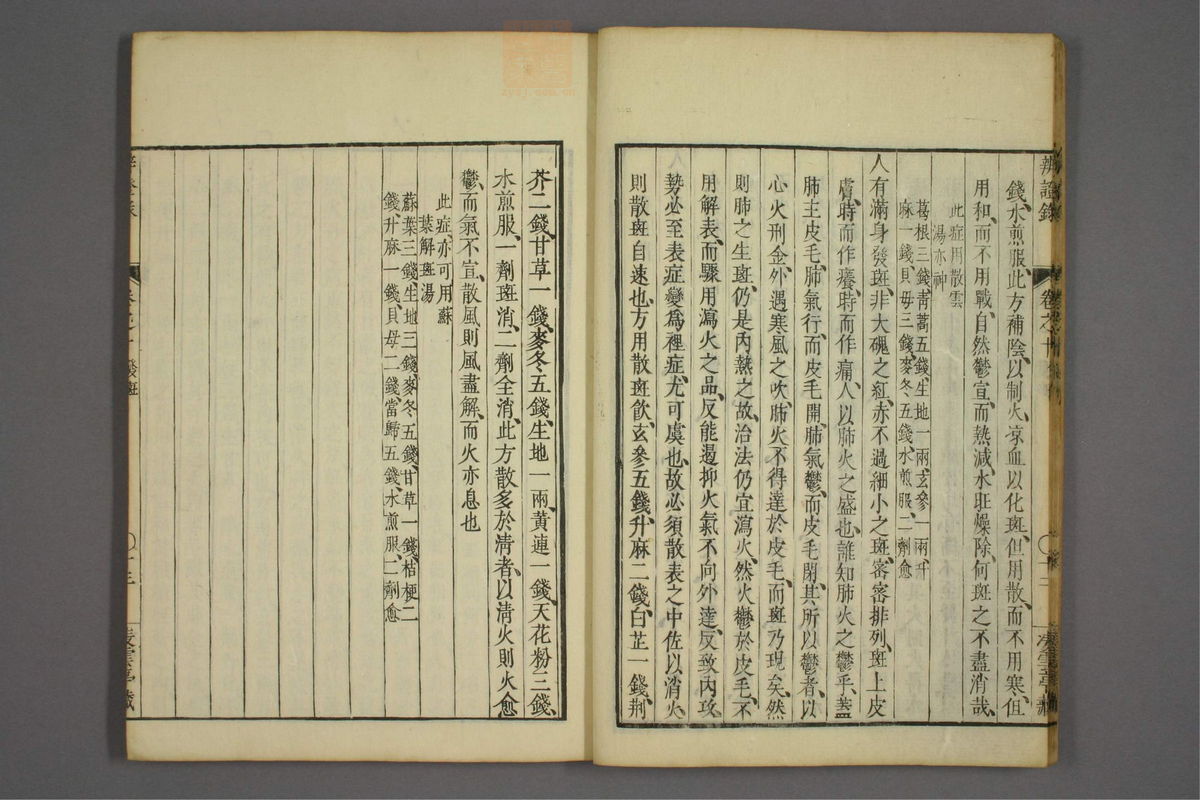 辨證錄 卷之十
錢、水煎服、此方補陰、以制火、凉血以化斑、但用散、而不用寒、但
用和、而不用戰、自然鬱宣、而熱減、水旺燥除、何斑之不盡消哉、
此症用散雲
湯亦神
葛根三錢、青蒿五錢、生地一兩、玄參一兩、升
麻一錢、貝母三錢、麥冬五錢、水煎服、二劑愈
人有滿身發斑、非大磈之紅赤、不過細小之斑、密密排列、斑上皮
膚、時而作癢、時而作痛、人以肺火之盛也、誰知肺火之鬱乎、蓋
肺主皮毛、肺氣行、而皮毛開、肺氣鬱、而皮毛閉、其所以鬱者、以
心火刑金、外遇寒風之吹、肺火不得達於皮毛、而斑乃現矣、然
則肺之生斑、仍是內熱之故、治法仍宜瀉火、然火鬱於皮毛、不
用解表、而驟用瀉火之品、反能遏抑火氣、不向外達、反致內攻
勢必至表症變爲裡症、尤可虞也、故必須散表之中、佐以消火
則散斑自速也、方用散斑飲、玄參五錢、升麻二錢、白芷一錢、荊
芥二錢、甘草一錢、麥冬五錢、生地一兩、黃連一錢、天花粉三錢、
水煎服、一劑斑消、二劑全消、此方散多於清者、以清火則火愈
鬱、而氣不宣、散風則風盡解、而火亦息也
此症、亦可用蘇
葉解斑湯
蘇葉三錢、生地三錢、麥冬五錢、甘草一錢、桔梗二
錢、升麻一錢、貝母二錢、當歸五錢、水煎服、二劑愈
發斑
十三